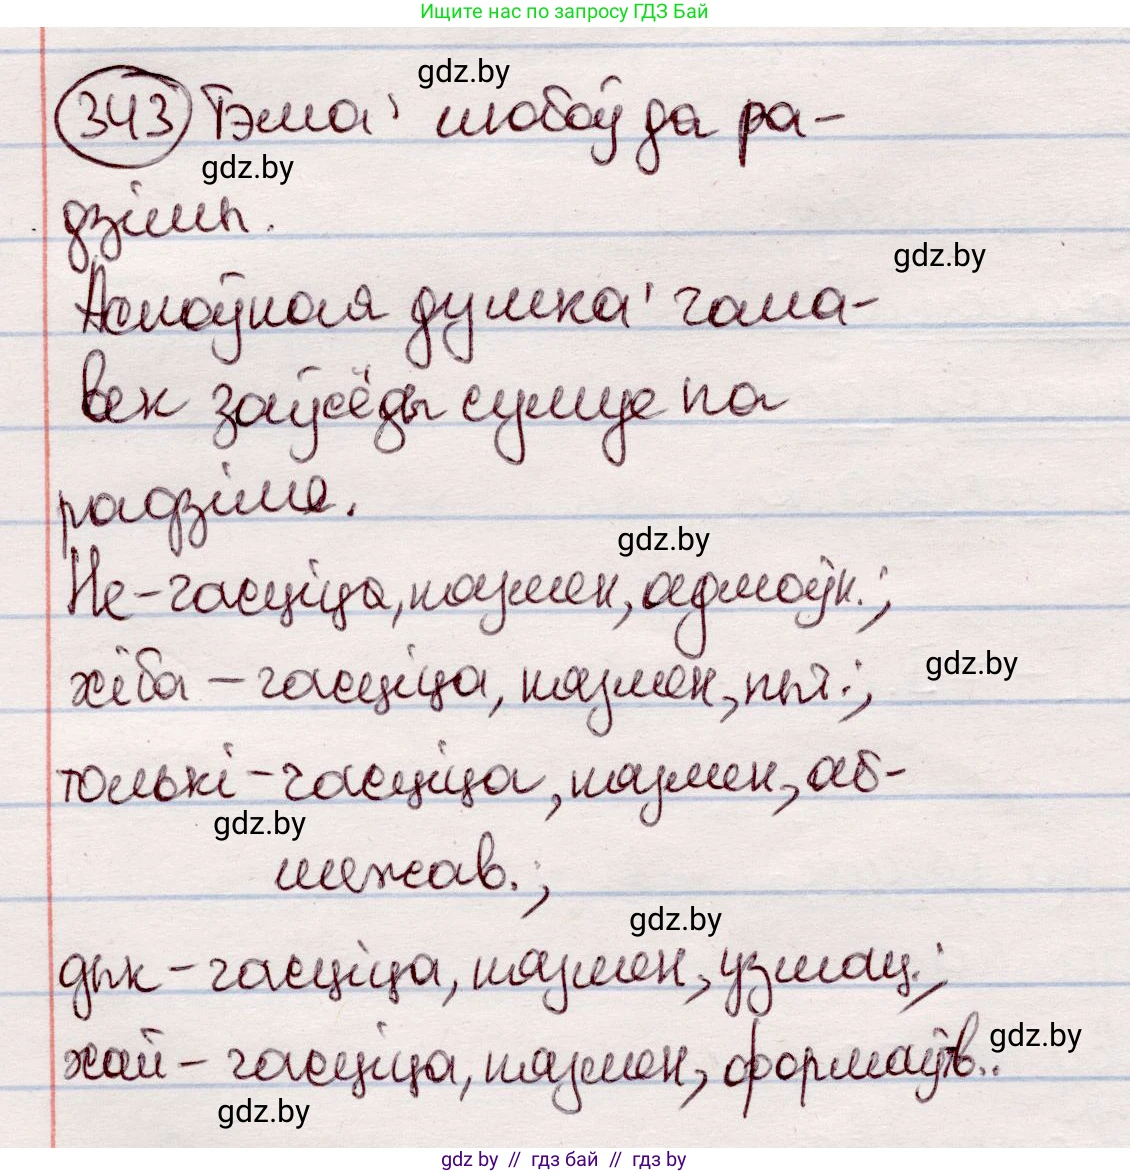 Ищите нас по запросу ГДЗ Бай
gdz.by
343 Тэма: любоў да ра-
gdz.by
дзімы.
gdz.by
Асноўная думка: чала-
век заўсёды сумуе па
радзіме.
gdz.by
Не - часціца, паумен, адмоўн.;
gdz.by
хіба - часціца, паумен, пыт.;
толькі - часціца, паумен, аб-
gdz.by
межав.;
gdz.by
дык - часціца, паумен, узмац.;
gdz.by
хай - часціца, паумен, формаўтв..
gdz.by
gdz.by // гдз бай // gdz.by